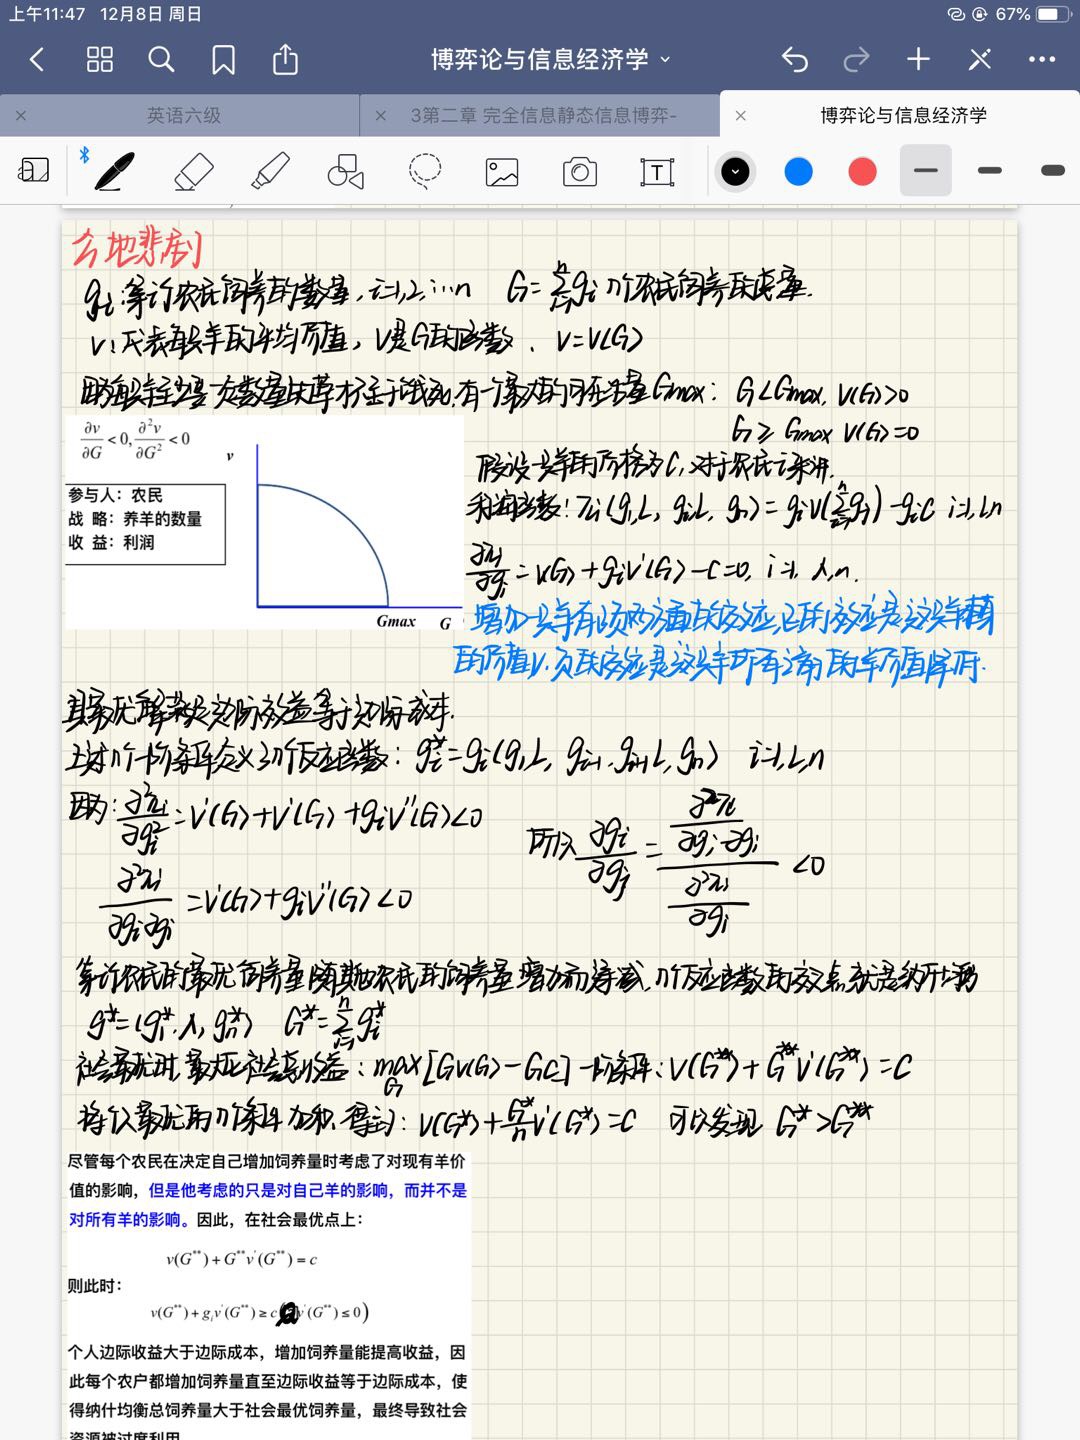 上午11:47 12月8日 周日
67%
博弈论与信息经济学
英语六级
3第二章 完全信息静态信息博弈-
博弈论与信息经济学
T
公地悲剧
gi:第i个农民饲养的数量,i=1,2,…n G=∑gi n个农民饲养的总量.
v:代表每只羊的平均价值,V是G的函数、V=V(G)
Gmax: G<Gmax, V(G)>0
G≥Gmax V(G)=0
∂v/∂G<0, ∂²v/∂G²<0
v
参与人：农民
战 略：养羊的数量
收 益：利润
Gmax G
假设一只羊的价格为C,对于农民i来讲.
利润函数:πi(g1,L, gi,L, gn)=giV(∑gj)-giC i=1,L,n
∂πi/∂gi=V(G)+giV'(G)-C=0, i=1, λ,n.
增加一只羊有正负两方面的效应,正的效应是这只羊本身
的价值V,负的效应是这只羊使所有之前的羊价值降低.
其最优解满足边际效益等于边际成本.
上述n个一阶条件定义了n个反应函数: gi*=gi(g1,L, gi-1, gi+1,L, gn) i=1,L,n
因为:∂²πi/∂gi²=V'(G)+V'(G)+giV''(G)<0
所以 ∂gi/∂gj = <0
∂²πi/∂gi∂gj=V'(G)+giV''(G)<0
第i个农民的最优饲养量随其他农民的饲养量增加而递减,n个反应函数的交点就是纳什均衡
g*=(g1*, λ, gn*) G*=∑gi*
社会最优时,最大化社会总收益: max[GV(G)-GC] 一阶条件: V(G**)+G**V'(G**)=C
将个人最优的n个条件加和,得到: V(G*)+G*/n V'(G*)=C 可以发现 G*>G**
尽管每个农民在决定自己增加饲养量时考虑了对现有羊价
值的影响，但是他考虑的只是对自己羊的影响，而并不是
对所有羊的影响。因此，在社会最优点上：
v(G**)+G**v'(G**)=c
则此时：
v(G**)+giv'(G**)≥c v'(G**)≤0)
个人边际收益大于边际成本，增加饲养量能提高收益，因
此每个农户都增加饲养量直至边际收益等于边际成本，使
得纳什均衡总饲养量大于社会最优饲养量，最终导致社会
资源被过度利用